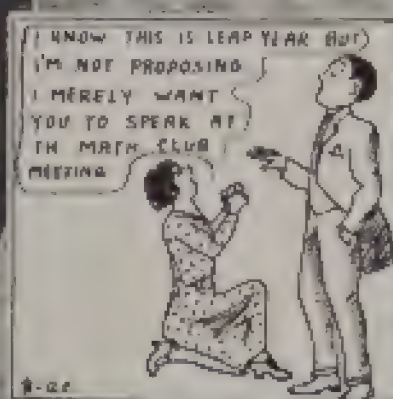 I KNOW THIS IS LEAP YEAR BUT
I'M NOT PROPOSING
I MERELY WANT
YOU TO SPEAK AT
TH MATH CLUB
MEETING